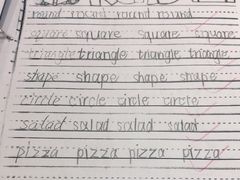 round round round round
square square square square
triangle triangle triangle triangle
shape shape shape shape
circle circle circle circle
salad salad salad salad
pizza pizza pizza pizza